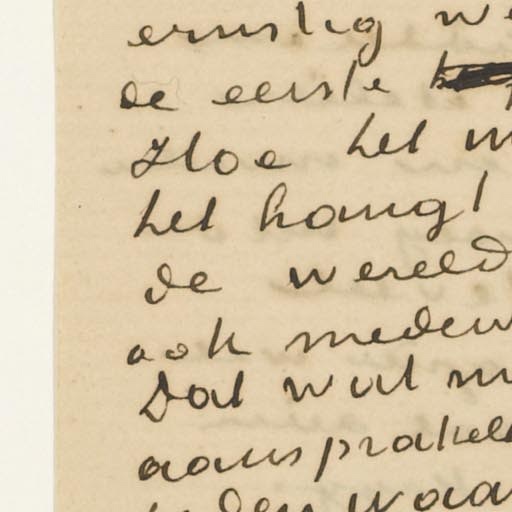 ernstig we
de eerste
Hoe het m
het hangt
de wereld
ook medew
Dat wat m
aansprakele